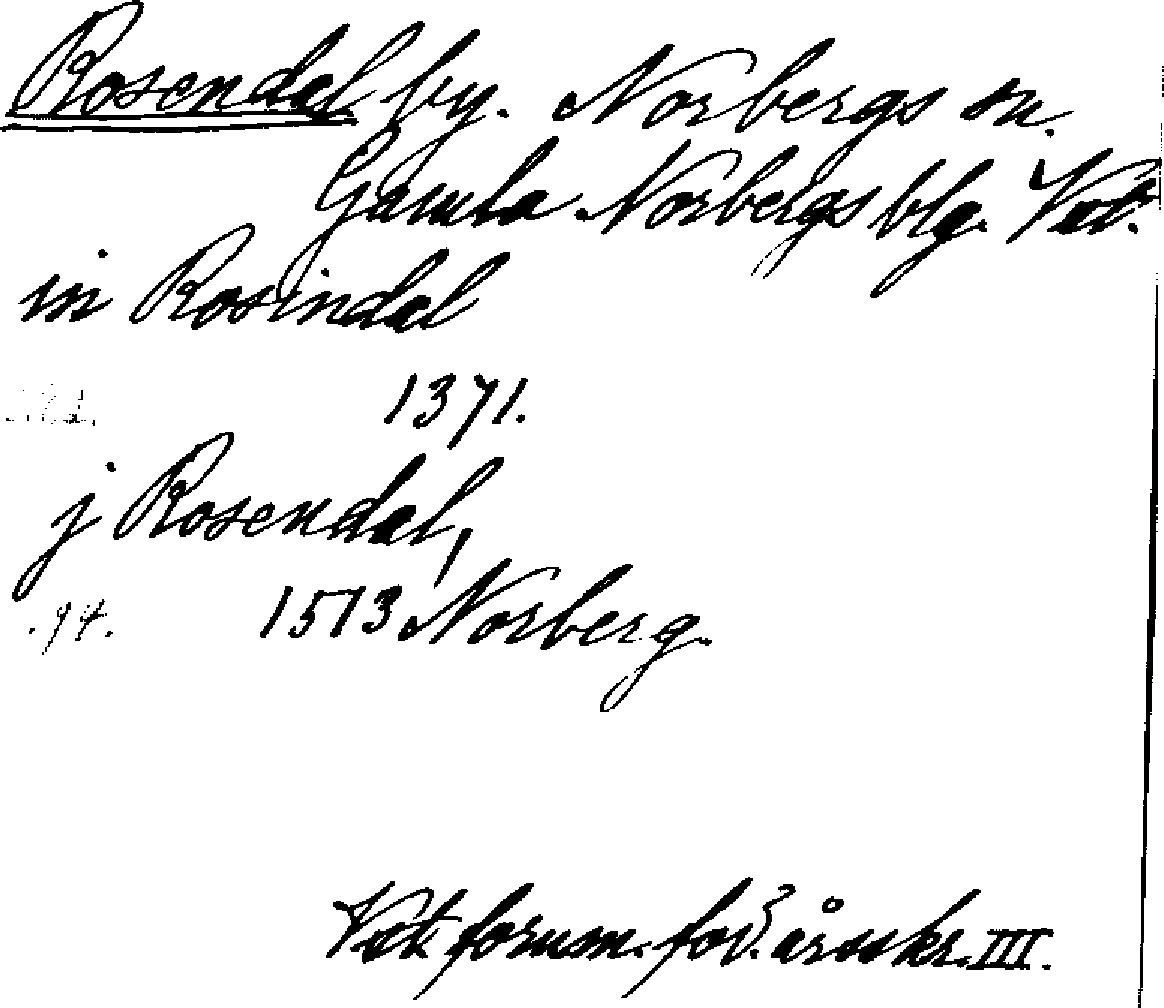 Rosendal by. Norbergs sn.
Gamla Norbergs blg. Vstm.
in Rosindal
1371.
j Rosendal,
.94. 1513 Norberg.
fornm. för:s årsskr. III.